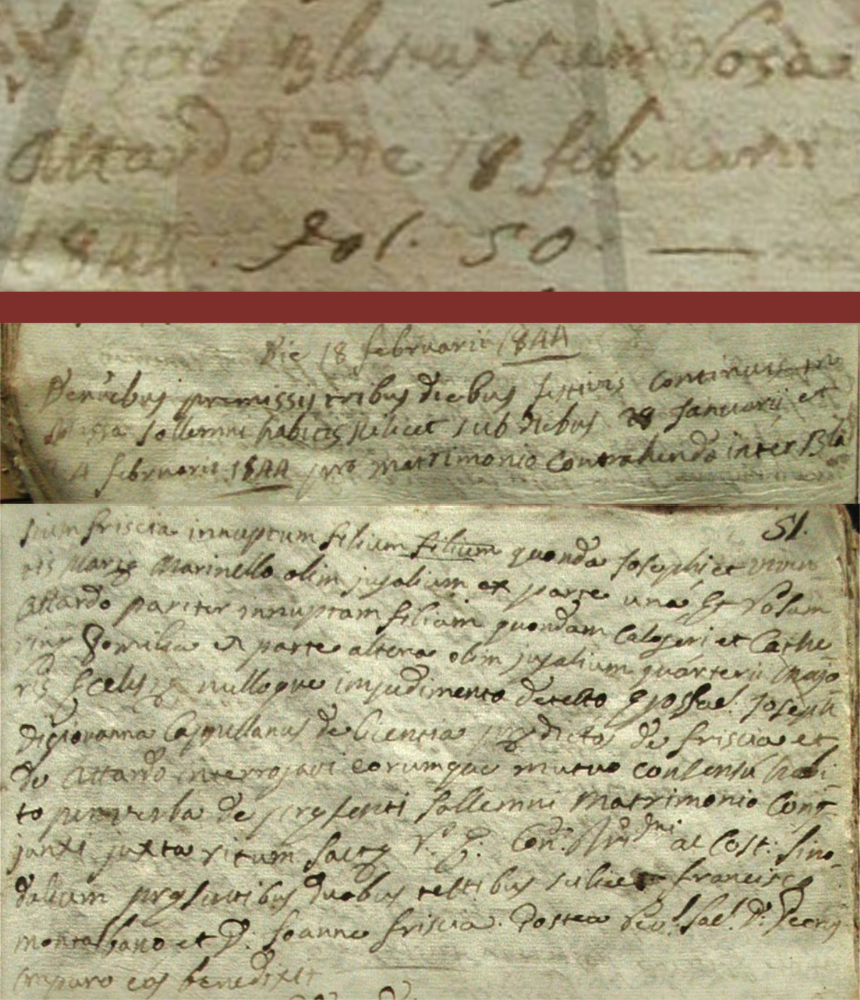 Friscia Blasius cum Rosa
Attardo die 18 februarii
1844. fol. 50. —
Die 18 februarii 1844
Denuncibus premissis tribus diebus festivis continuis in
Missa sollemni habitis scilicet sub diebus 28 Januarii et
4 februarii 1844 pro matrimonio contrahendo inter Bla
51.
sium friscia innuptum filium filium quondā Josephi et viven
tis Marie Marinello olim jugalium ex parte una, Et Rosam
Attardo pariter innuptam filiam quondam Calogeri et Cathe
rine Gomilia ex parte altera olim jugalium quarterii majo
ris Eccelsię nulloque impedimento detecto Ego Sac. Joseph
Digiovanna Cappellanus de licentia predictos de friscia et
de Attardo interrogavi eorumque mutuo consensu habi
to per verba de presenti sollemni matrimonio Con
junxi juxta ritum Sactę r. E. Con. ac Cost. sino
dalium presentibus duobus testibus scilicet francisco
montalbano et D. Joanne friscia. Postea Rev. Sac. D.
Imparo eos benedixit